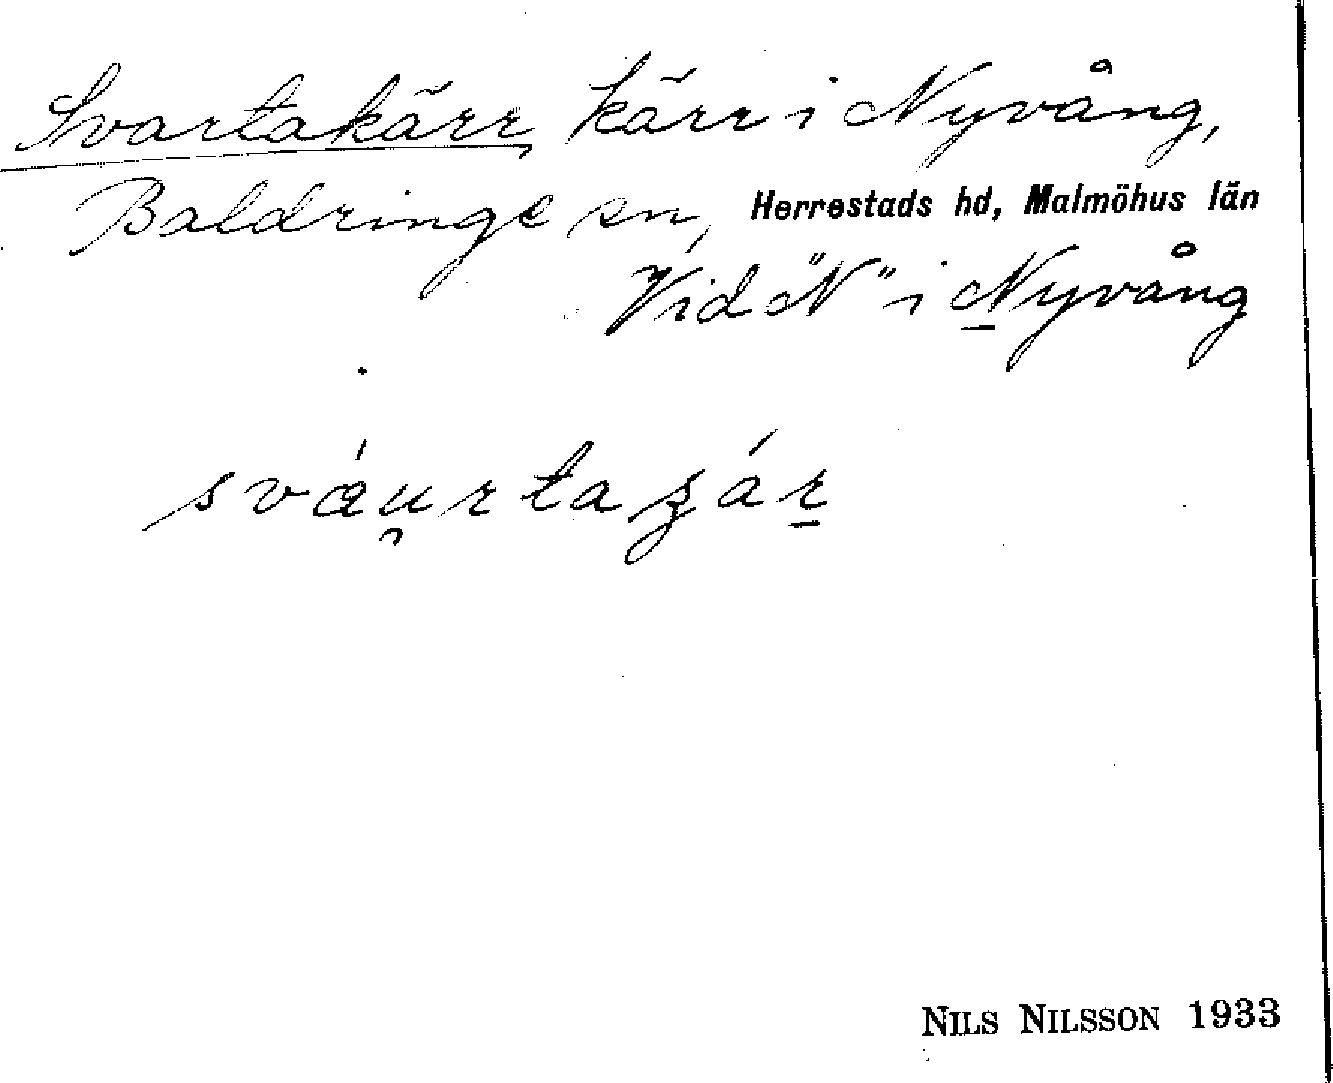 Svartakärr, kärr i Nyvång,
Baldringe sn, Herrestads hd, Malmöhus län
Vid "N" i Nyvång
NILS NILSSON 1933